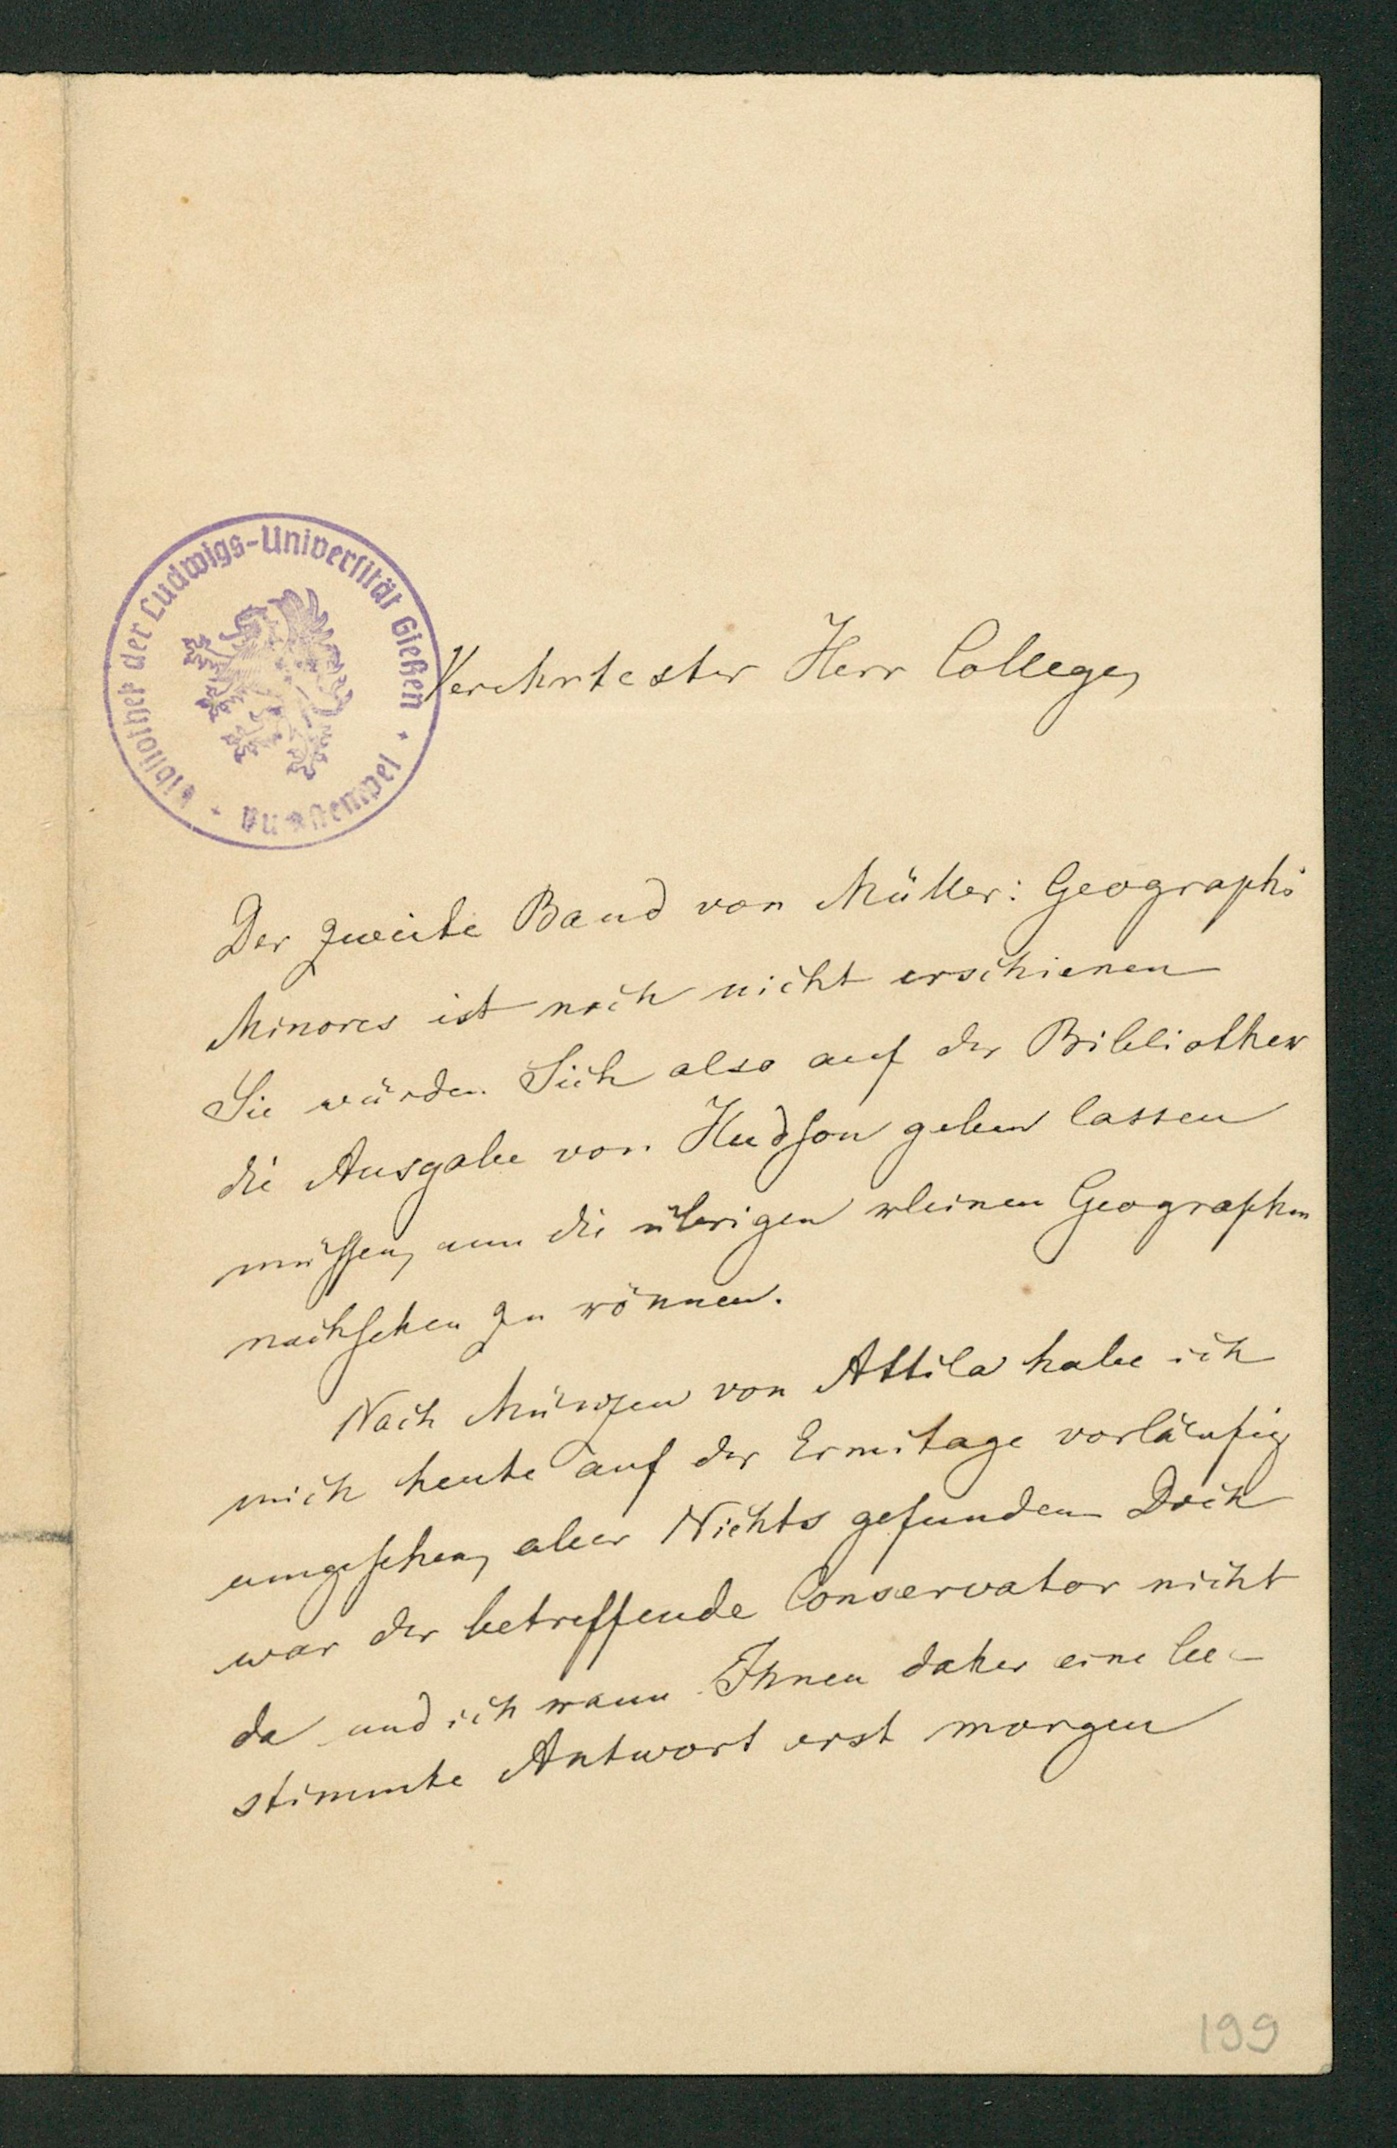 Bibliothek der Ludwigs-Universität Gießen
Verehrtester Herr College,
Der zweite Band von Müller: Geographi
Minores ist noch nicht erschienen
Sie würden Sich also auf der Bibliothek
die Ausgabe von Hudson geben lassen
müssen, um die übrigen kleinen Geographen
nachsehen zu können.
Nach Münzen von Attila habe ich
mich heute auf der Ermitage vorläufig
umgesehen, aber Nichts gefunden Doch
war der betreffende Conservator nicht
da und ich kann Ihnen daher eine be-
stimmte Antwort erst morgen
199